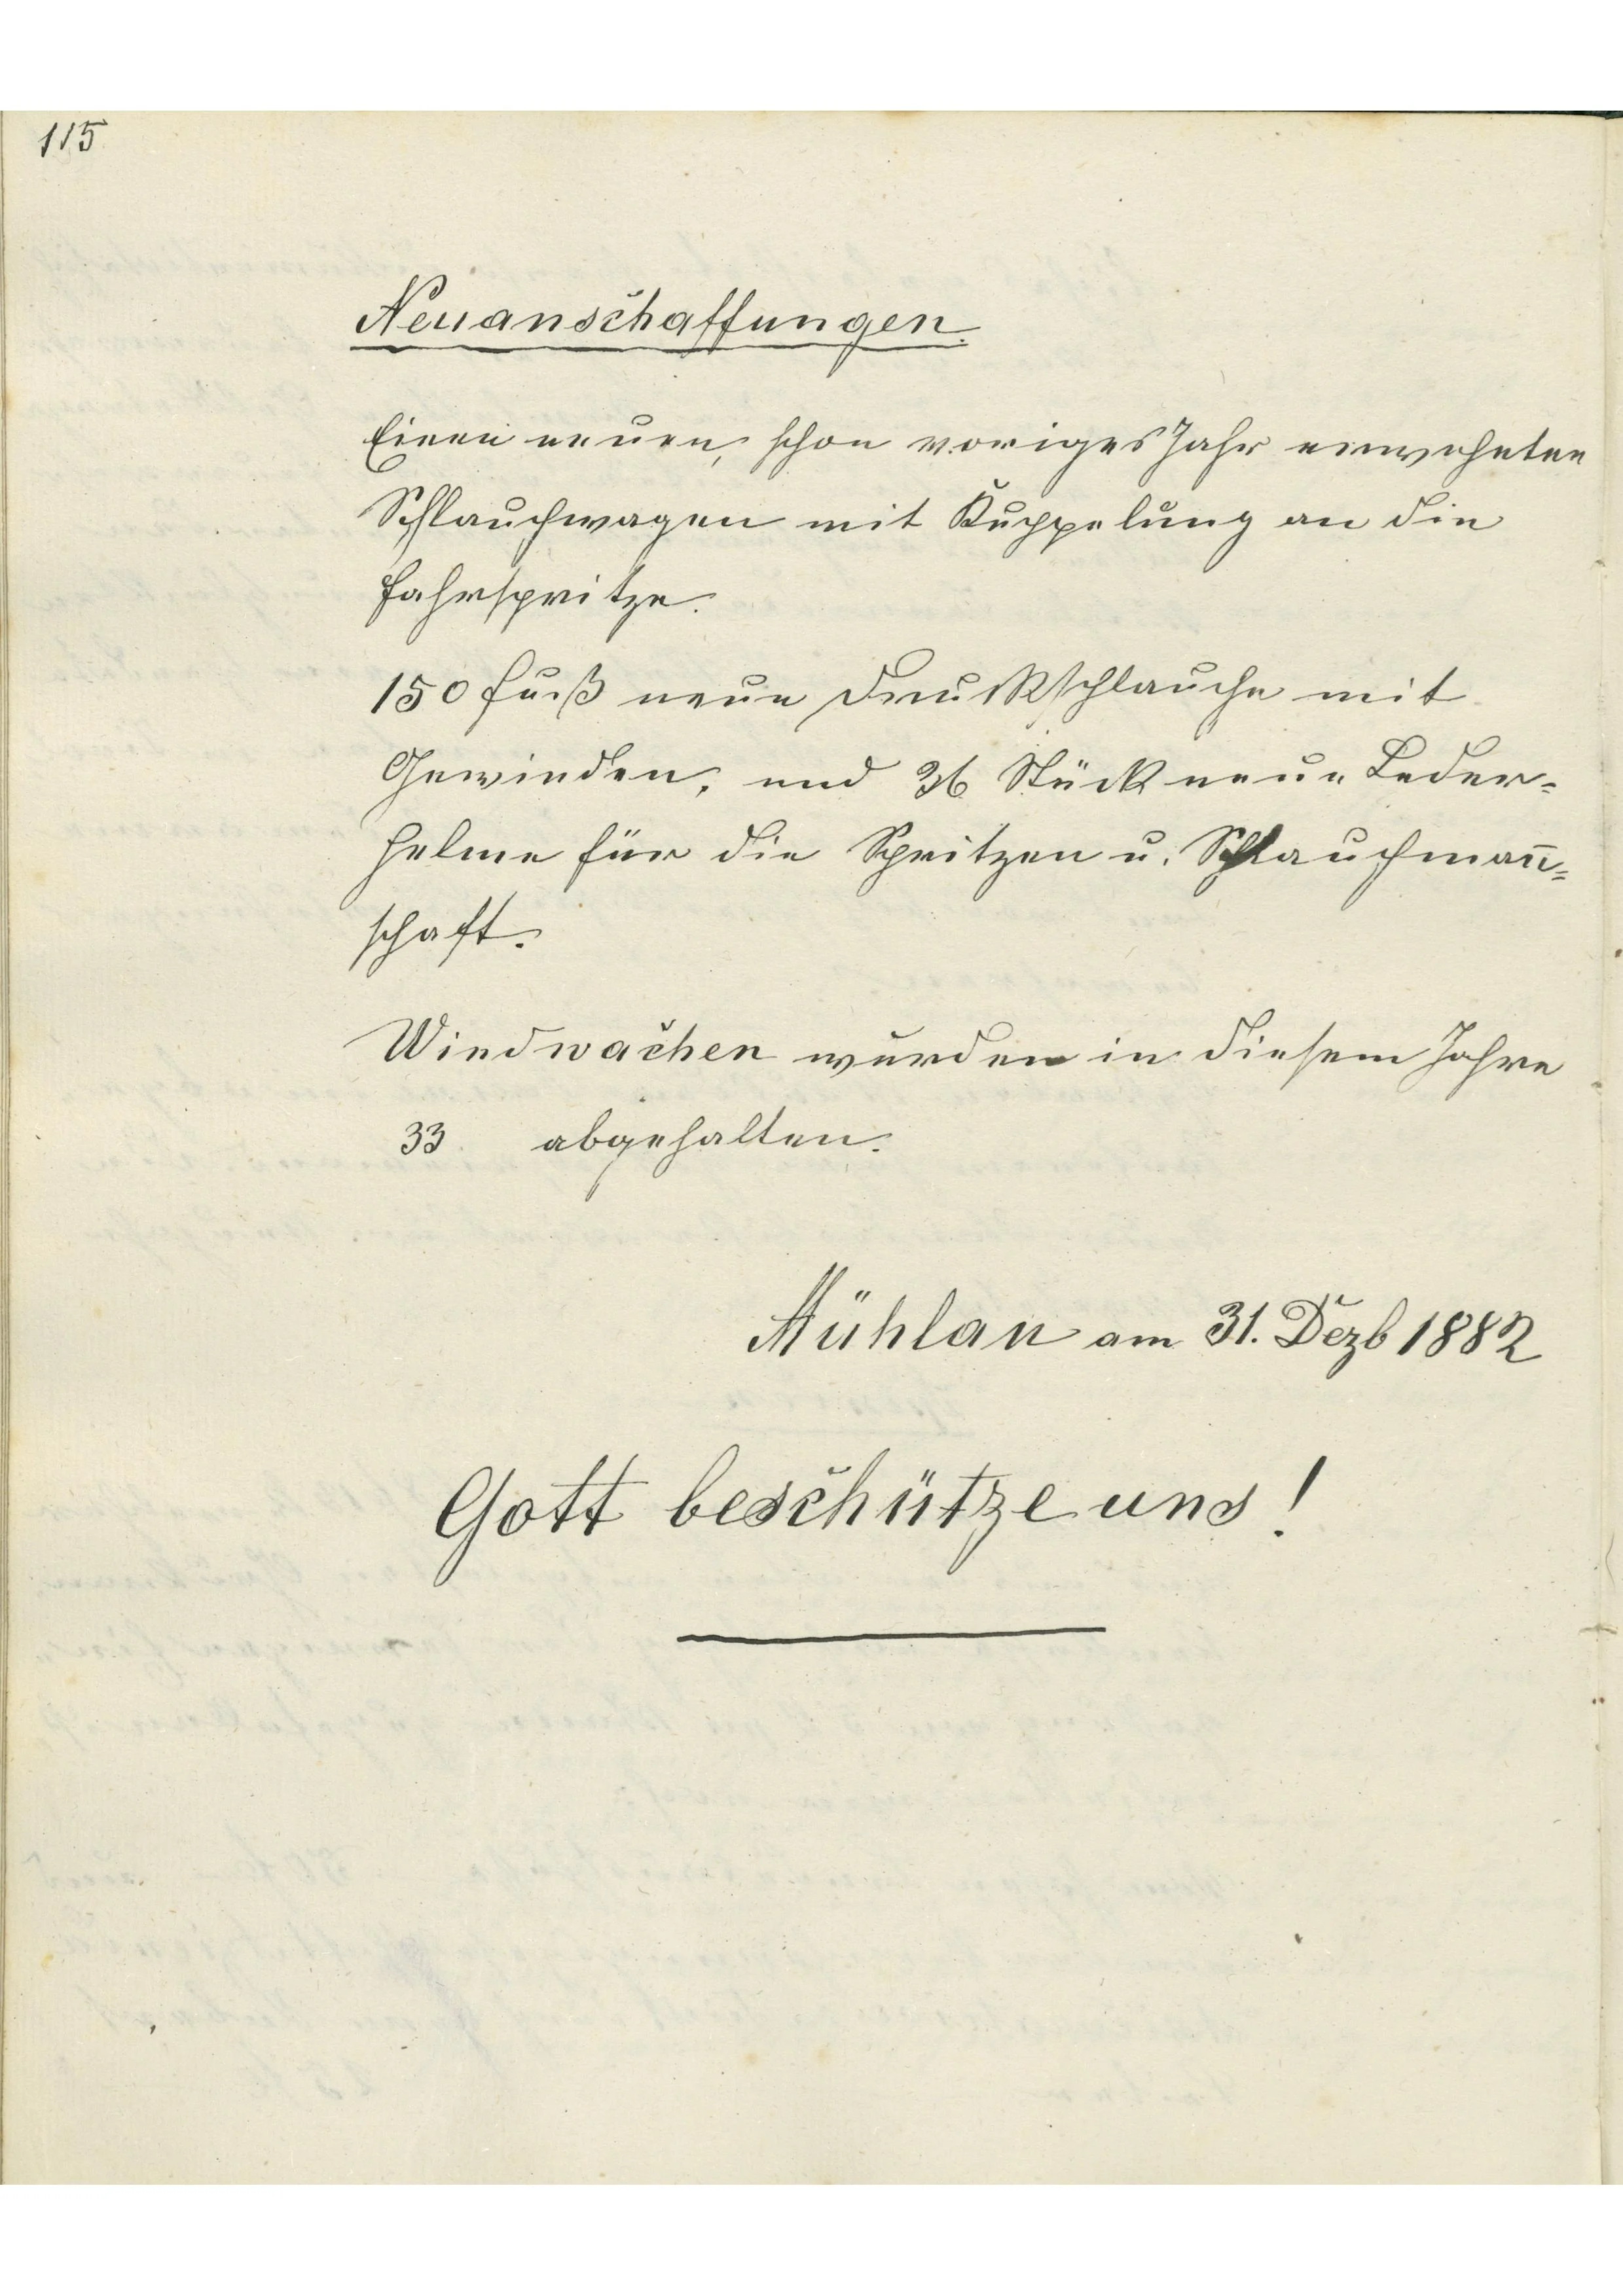 115
Neuanschaffungen.
Einen neuen, schon voriges Jahr erwehnten
Schlauchwagen mit Kuppelung an die
Fahrspritze.
150 Fuß neue Druckschlauche mit
Gewinden, und 36 Stück neue Leder=
helme für die Spritzen u. Schlauchman̄=
schaft.
Windwachen wurden in diesem Jahre
33 abgehalten.
Mühlau am 31. Dezb 1882
Gott beschütze uns!